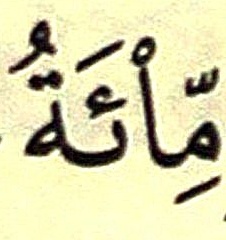 مِّاْئَةُ